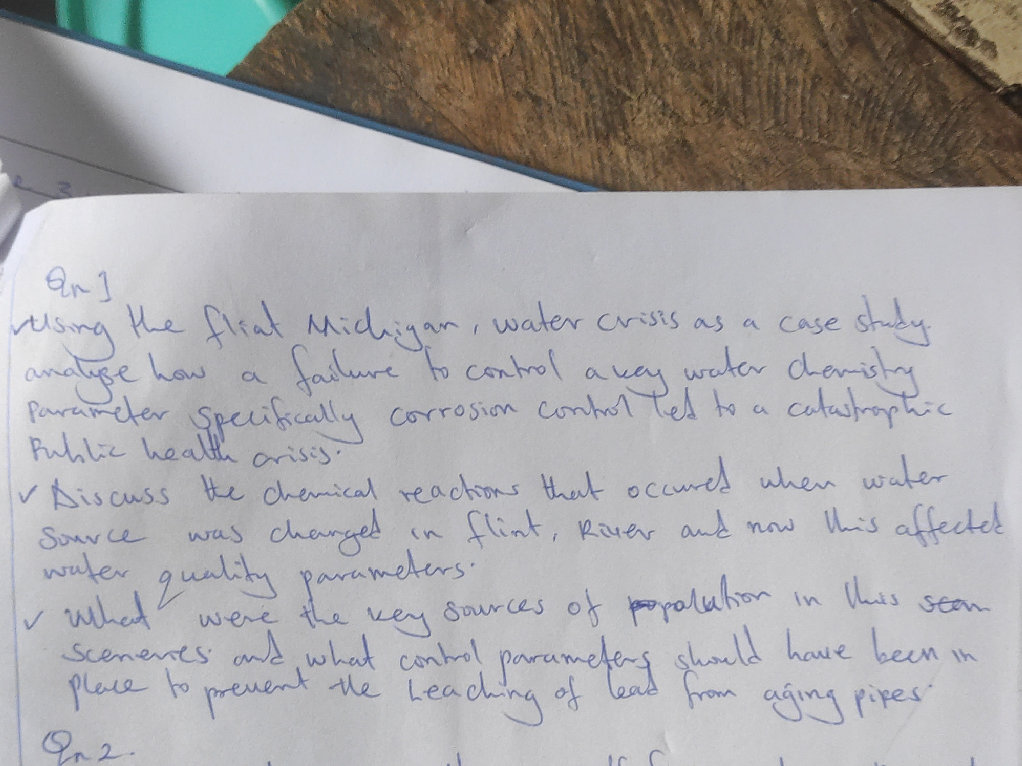 Qn 1
Using the flint Michigan, water crisis as a case study.
analyse how a failure to control a key water chemistry
parameter specifically corrosion control led to a catastrophic
Public health crisis.
✓ Discuss the chemical reactions that occured when water
source was changed in flint, River and how this affected
water quality parameters.
✓ What were the key sources of polution in this
sceneries and what control parameters should have been in
place to prevent the Leaching of lead from aging pipes.
Qn 2.